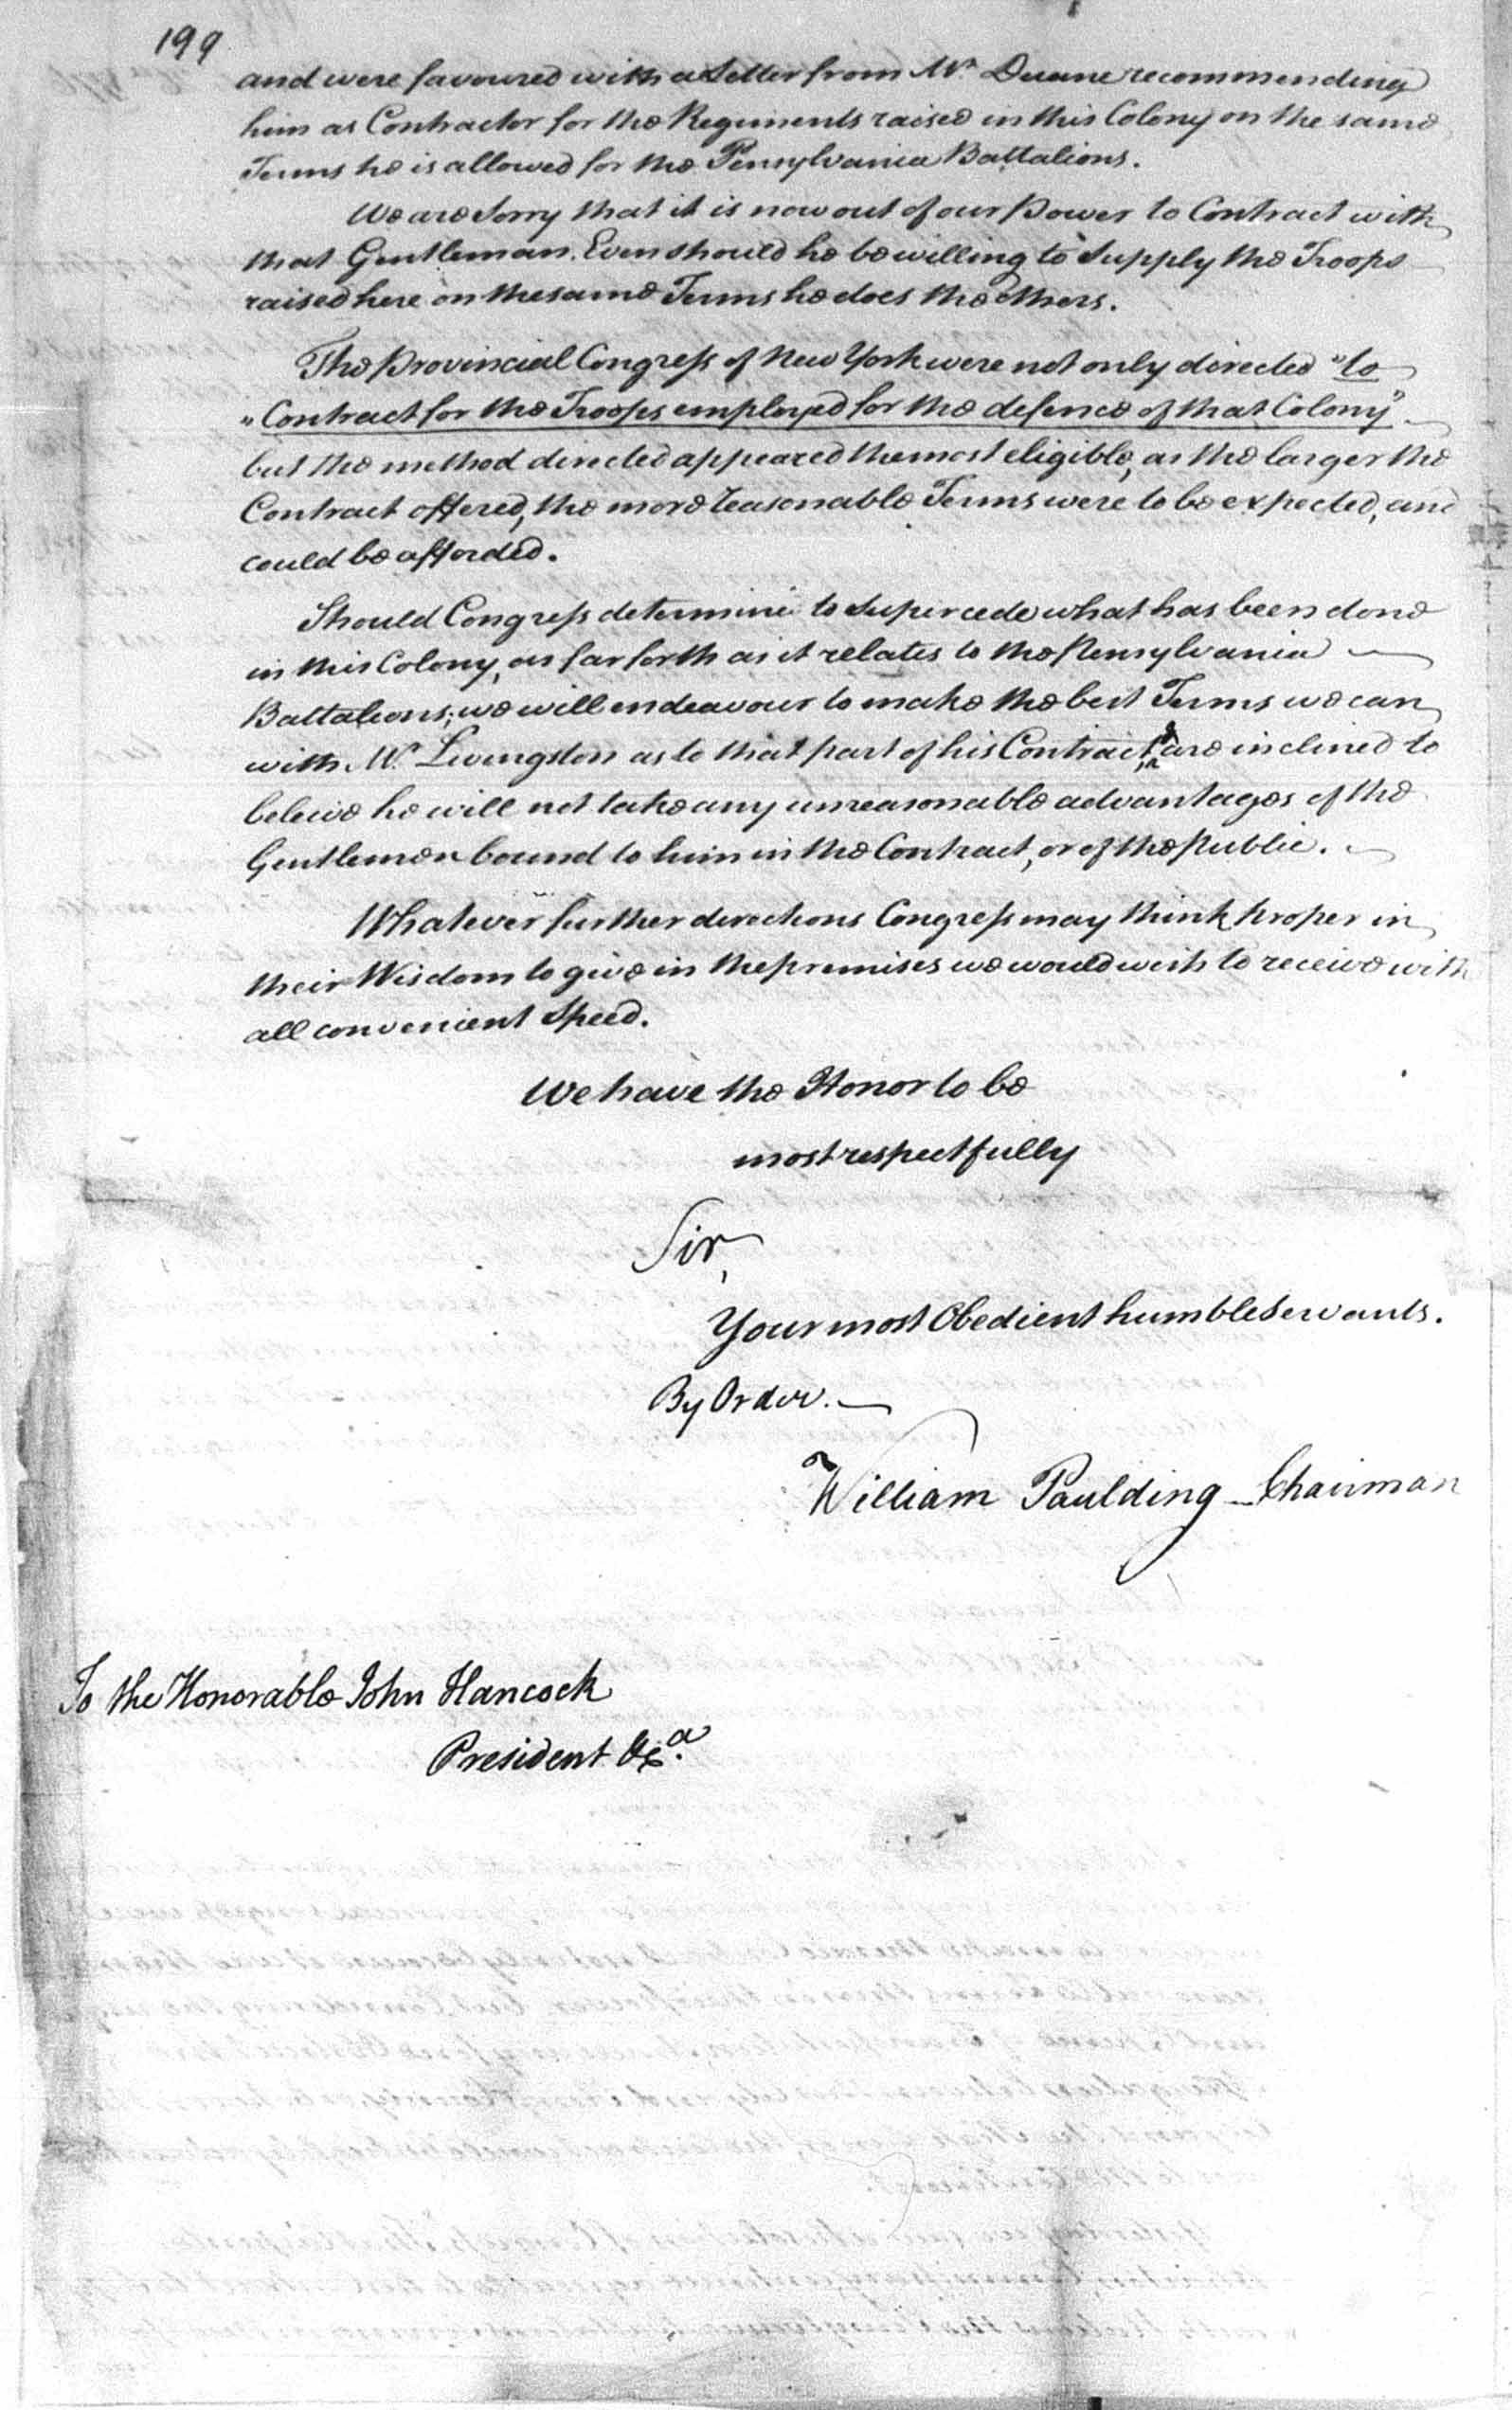 199
and were favoured with a Letter from Mr. Duane recommending
him as Contractor for the Regiments raised in this Colony on the same
Terms he is allowed for the Pensylvania Battalions.
We are Sorry that it is now out of our Power to Contract with
that Gentleman. Even should he be willing to Supply the Troops
raised here on the same Terms he does the others.
The Provincial Congress of New York were not only directed "to
"Contract for the Troops employed for the defence of that Colony"
but the method directed appeared the most eligible, as the larger the
Contract offered, the more reasonable Terms were to be expected, and
could be afforded.
Should Congress determine to Supercede what has been done
in this Colony, as far forth as it relates to the Pensylvania
Battalions; we will endeavour to make the best Terms we can
with Mr. Livingston as to that part of his Contract, & are inclined to
beleive he will not take any unreasonable advantages of the
Gentlemen bound to him in the Contract, or of the Public.
Whatever further directions Congress may think proper in
their Wisdom to give in the premises we would wish to receive with
all convenient Speed.
We have the Honor to be
most respectfully
Sir,
Your most Obedient humble Servants.
By Order.
William Paulding Chairman
To the Honorable John Hancock
President &ca.